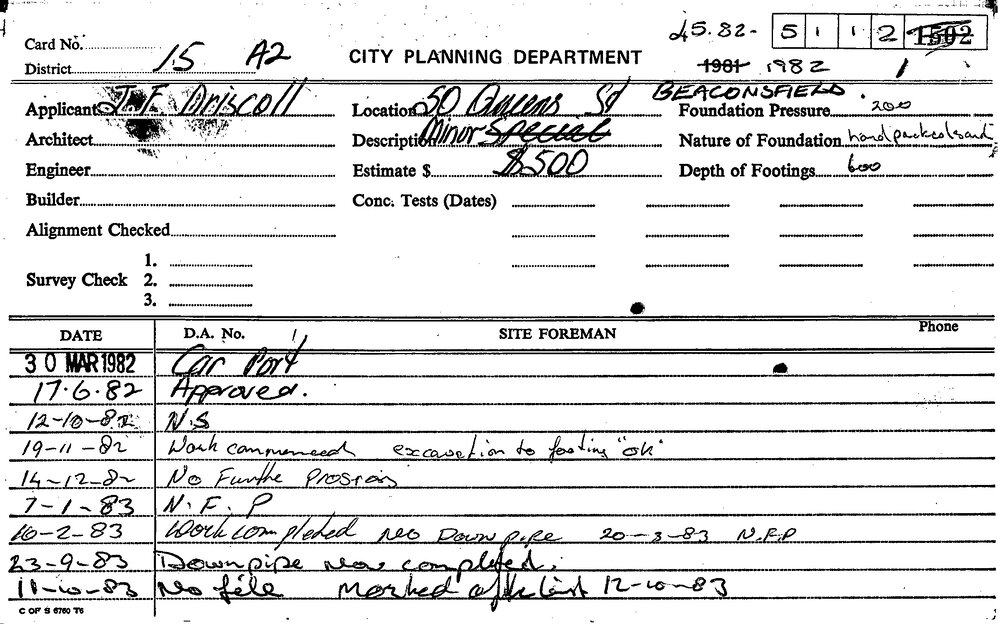 Card No. 45.82- 5 1 1 2 1502
District 15 A2 CITY PLANNING DEPARTMENT 1981 1982 1
Applicant J.F. Driscoll Location 50 Queens St BEACONSFIELD. Foundation Pressure 200
Architect Description Minor SPECIAL Nature of Foundation hard packed sand
Engineer Estimate $ $500 Depth of Footings 600
Builder Conc. Tests (Dates)
Alignment Checked
1.
Survey Check 2.
3.
DATE D.A. No. SITE FOREMAN Phone
30 MAR 1982 Car Port
17.6.82 Approved.
12-10-82 N.S
19-11-82 Work commenced excavation to footing "ok"
14-12-82 No Furthe Progress
7-1-83 N.F.P
10-2-83 Work completed No Down pipe 20-3-83 N.F.P
23-9-83 Downpipe Now completed.
11-10-83 No file Marked off list 12-10-83
C OF S 6760 T6